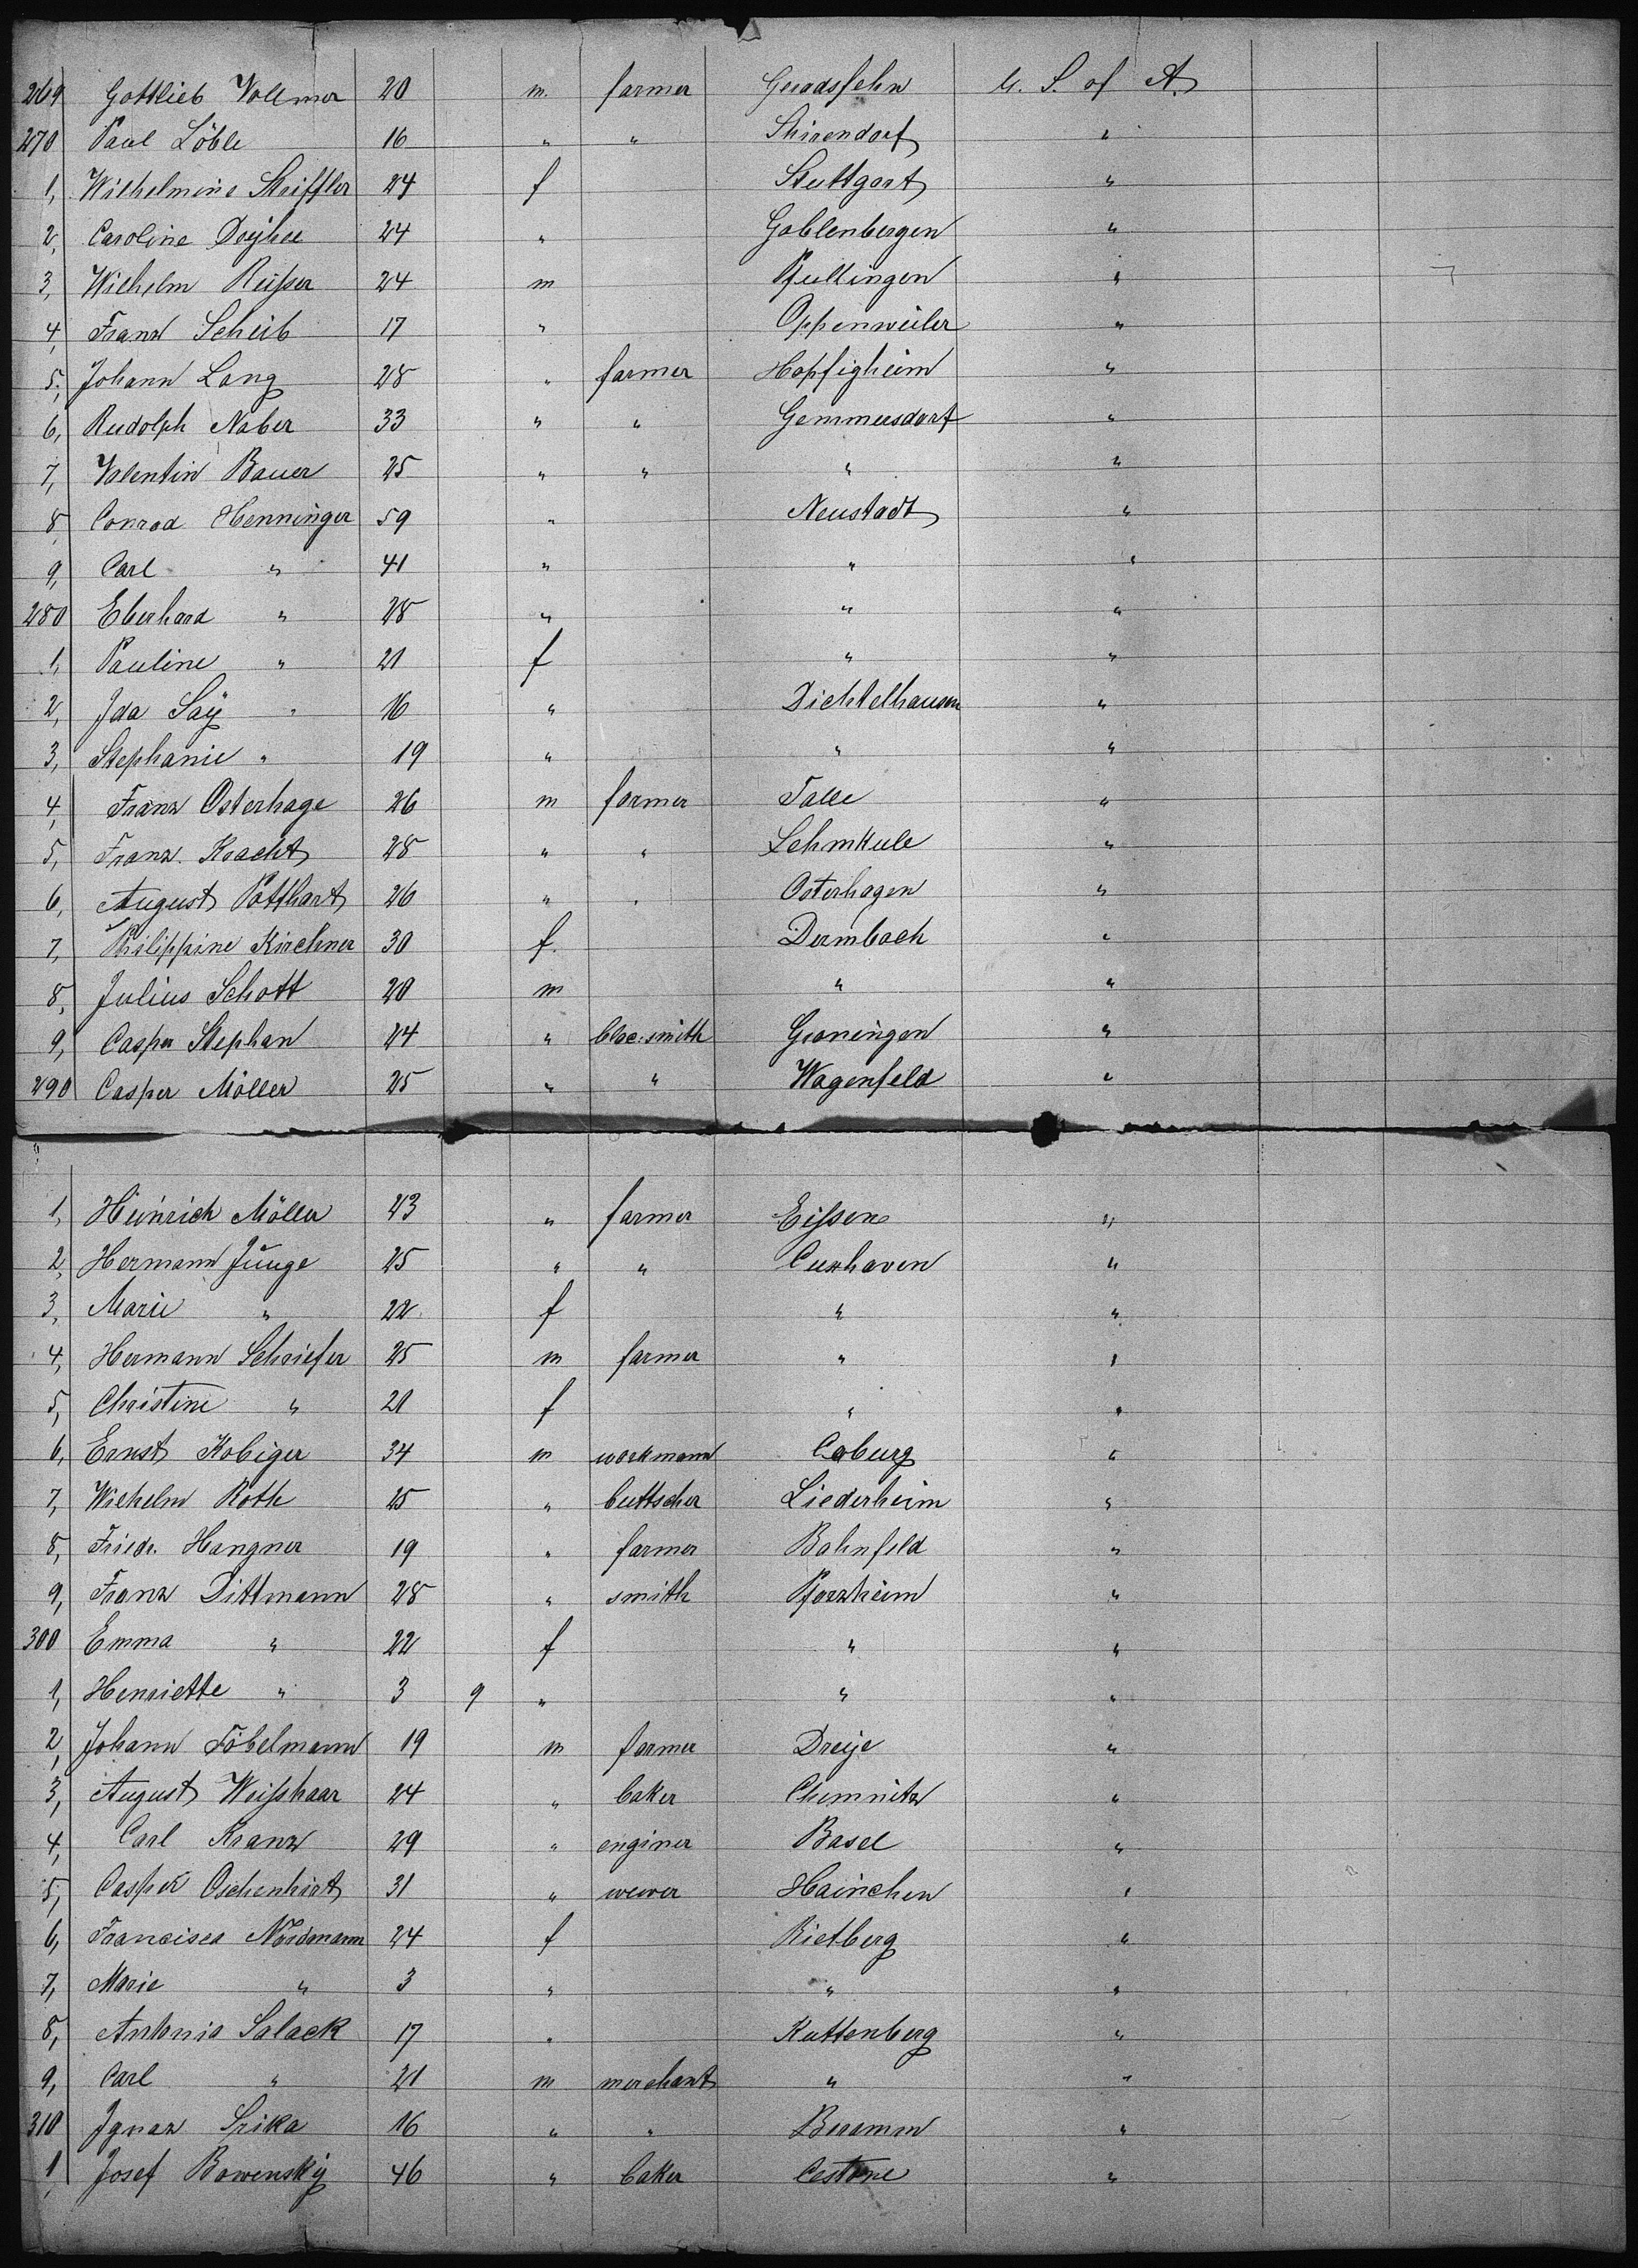 269 Gottlieb Vollmer 20 m. farmer Geradsfehn U. S. of A.
270 Paul Löble 16 " " Shirendorf "
1, Wilhelmine Striffler 24 f Stuttgart "
2, Caroline 24 " Gablenbergen "
3, Wilhelm Reißer 24 m Pfullingen "
4, Franz Scheib 17 " Oppenweiler "
5, Johann Lang 28 " farmer Hopfigheim "
6, Rudolph Naber 33 " " Gemmersdorf "
7, Valentin Bauer 25 " " " "
8, Conrad Henninger 59 " Neustadt "
9, Carl " 41 " " "
280 Eberhard " 28 " " "
1, Pauline " 21 f " "
2, Ida Saÿ " 16 " Dichtelhausen "
3, Stephanie " 19 " " "
4, Franz Osterhage 26 m farmer Talle "
5, Franz. Kracht 28 " " Lehmkule "
6, August Potthart 26 " " Osterhagen "
7, Philippine Kirchner 30 f. Dermbach "
8, Julius Schott 20 m " "
9, Casper Stephan 24 " blac.smith Groningen "
290 Casper Möller 25 " " Wagenfeld "
1, Heinrich Möller 23 " farmer Eißen "
2, Hermann Junge 25 " " Cuxhaven "
3, Marie " 22 f " "
4, Hermann Schriefer 25 m farmer " "
5, Christine " 21 f " "
6, Ernst Kobiger 34 m workmann Coburg "
7, Wilhelm Roth 25 " buttscher Liederheim "
8, Friedr. Hangner 19 " farmer Bahnfeld "
9, Franz Dittmann 28 " smith Pforzheim "
300 Emma " 22 f " "
1, Henriette " 3 9 " " "
2, Johann Föbelmann 19 m farmer Dreije "
3, August Weißhaar 24 " baker Chemnitz "
4, Carl Kranz 29 " enginer Basel "
5, Casper Oschenhirt 31 " wewer Hainchen "
6, Francisca Nordmann 24 f Rietberg "
7, Marie " 3 " " "
8, Antonia Salack 17 " Kuttenberg "
9, Carl " 21 m merchant " "
310 Ignaz Srika 16 " " Beramm "
1, Josef Bowenskÿ 46 " baker Cestone "